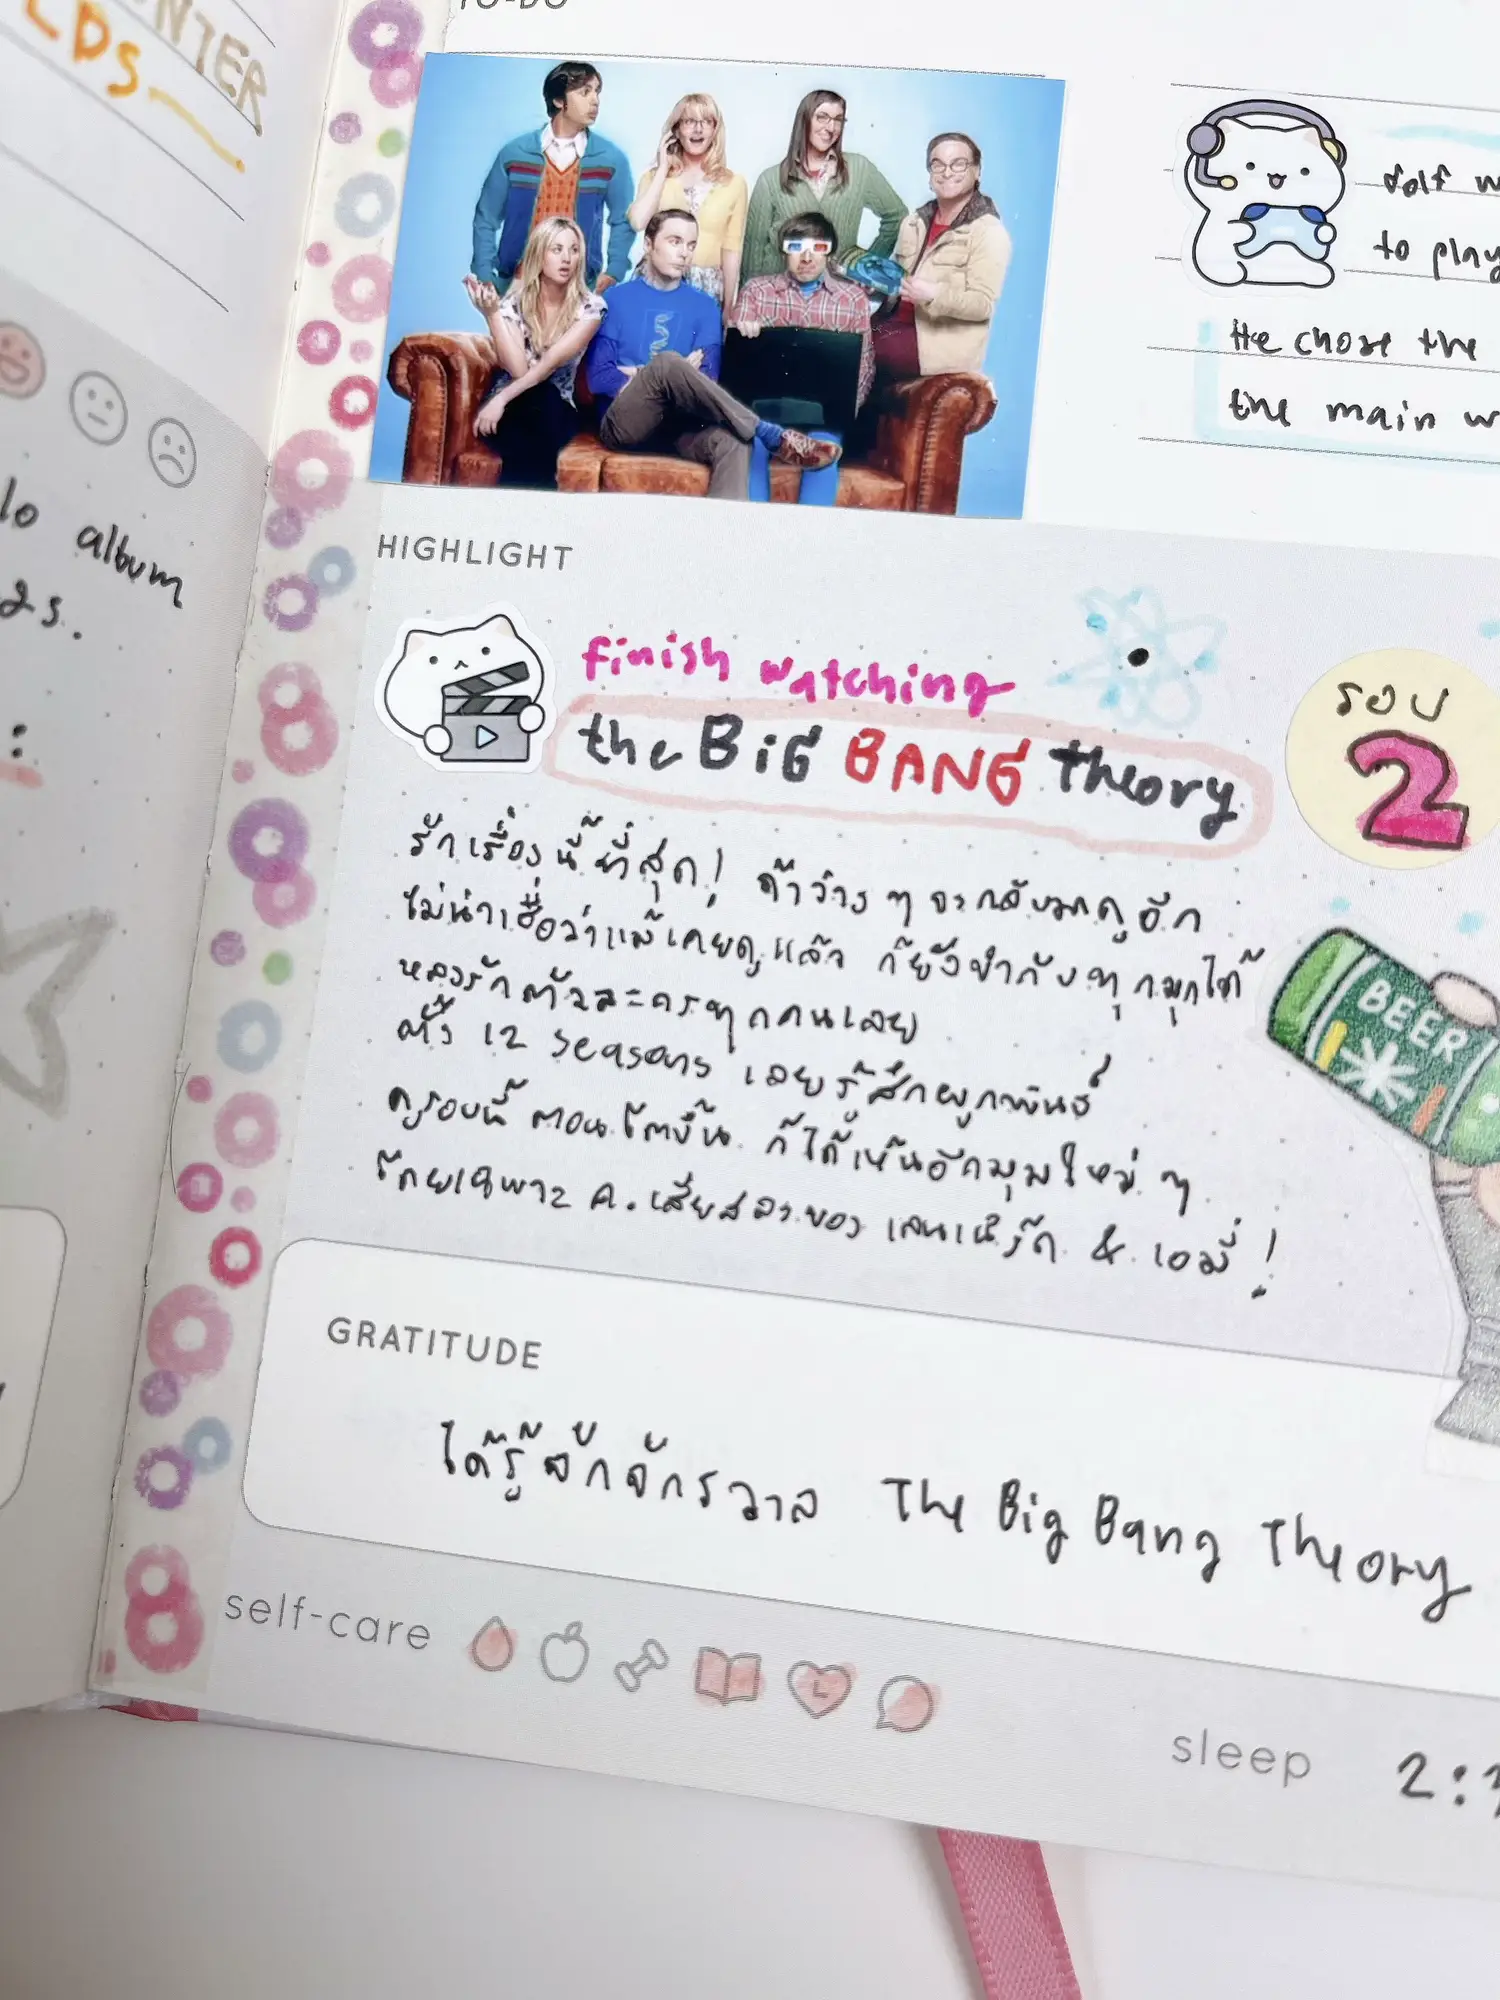 NTER
CDS
lo album
TO-DO
to play
He chose the
the main w
HIGHLIGHT
finish watching
the BiG BANG theory
รอบ
2
รักเรื่องนี้ที่สุด! ถ้าว่าง ๆ จะกลับมาดูอีก
ไม่น่าเชื่อว่าแม้เคยดูแล้ว ก็ยังขำกับทุกมุกได้
หลงรักตัวละครทุกคนเลย
ทั้ง 12 seasons เลยรู้สึกผูกพันธ์
ดูรอบนี้ ตอนโตขึ้น ก็ได้เห็นอีกมุมใหม่ ๆ
โดยเฉพาะ ค.เสียสละของ เลนเนิร์ด & เอมี่!
BEER
GRATITUDE
ได้รู้จักจักรวาล The Big Bang Theory
self-care
sleep